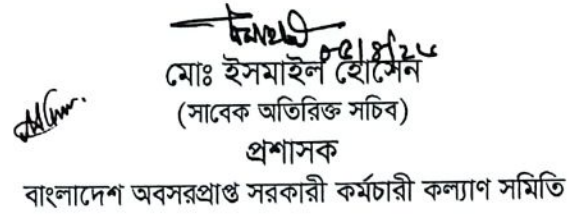 মোঃ ইসমাইল হোসেন
(সাবেক অতিরিক্ত সচিব)
প্রশাসক
বাংলাদেশ অবসরপ্রাপ্ত সরকারী কর্মচারী কল্যাণ সমিতি